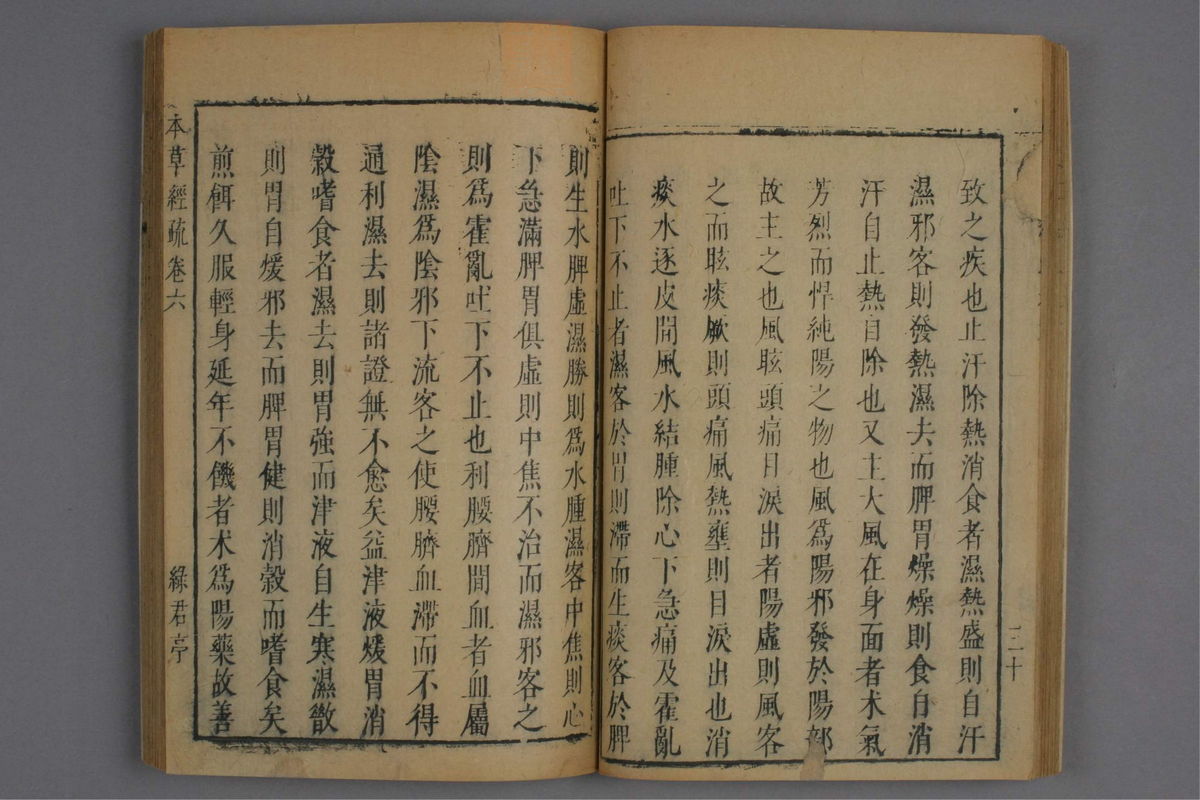 致之疾也止汗除熱消食者濕熱盛則自汗
濕邪客則發熱濕去而脾胃燥燥則食自消
汗自止熱自除也又主大風在身面者术氣
芳烈而悍純陽之物也風爲陽邪發於陽部
故主之也風眩頭痛目淚出者陽虛則風客
之而眩痰厥則頭痛風熱壅則目淚出也消
痰水逐皮間風水結腫除心下急痛及霍亂
吐下不止者濕客於胃則滯而生痰客於脾
則生水脾虛濕勝則爲水腫濕客中焦則心
下急滿脾胃俱虛則中焦不治而濕邪客之
則爲霍亂吐下不止也利腰臍間血者血屬
陰濕爲陰邪下流客之使腰臍血滯而不得
通利濕去則諸證無不愈矣益津液煖胃消
穀嗜食者濕去則胃強而津液自生寒濕散
則胃自煖邪去而脾胃健則消穀而嗜食矣
煎餌久服輕身延年不饑者术爲陽藥故善
本草經疏卷六
綠君亭